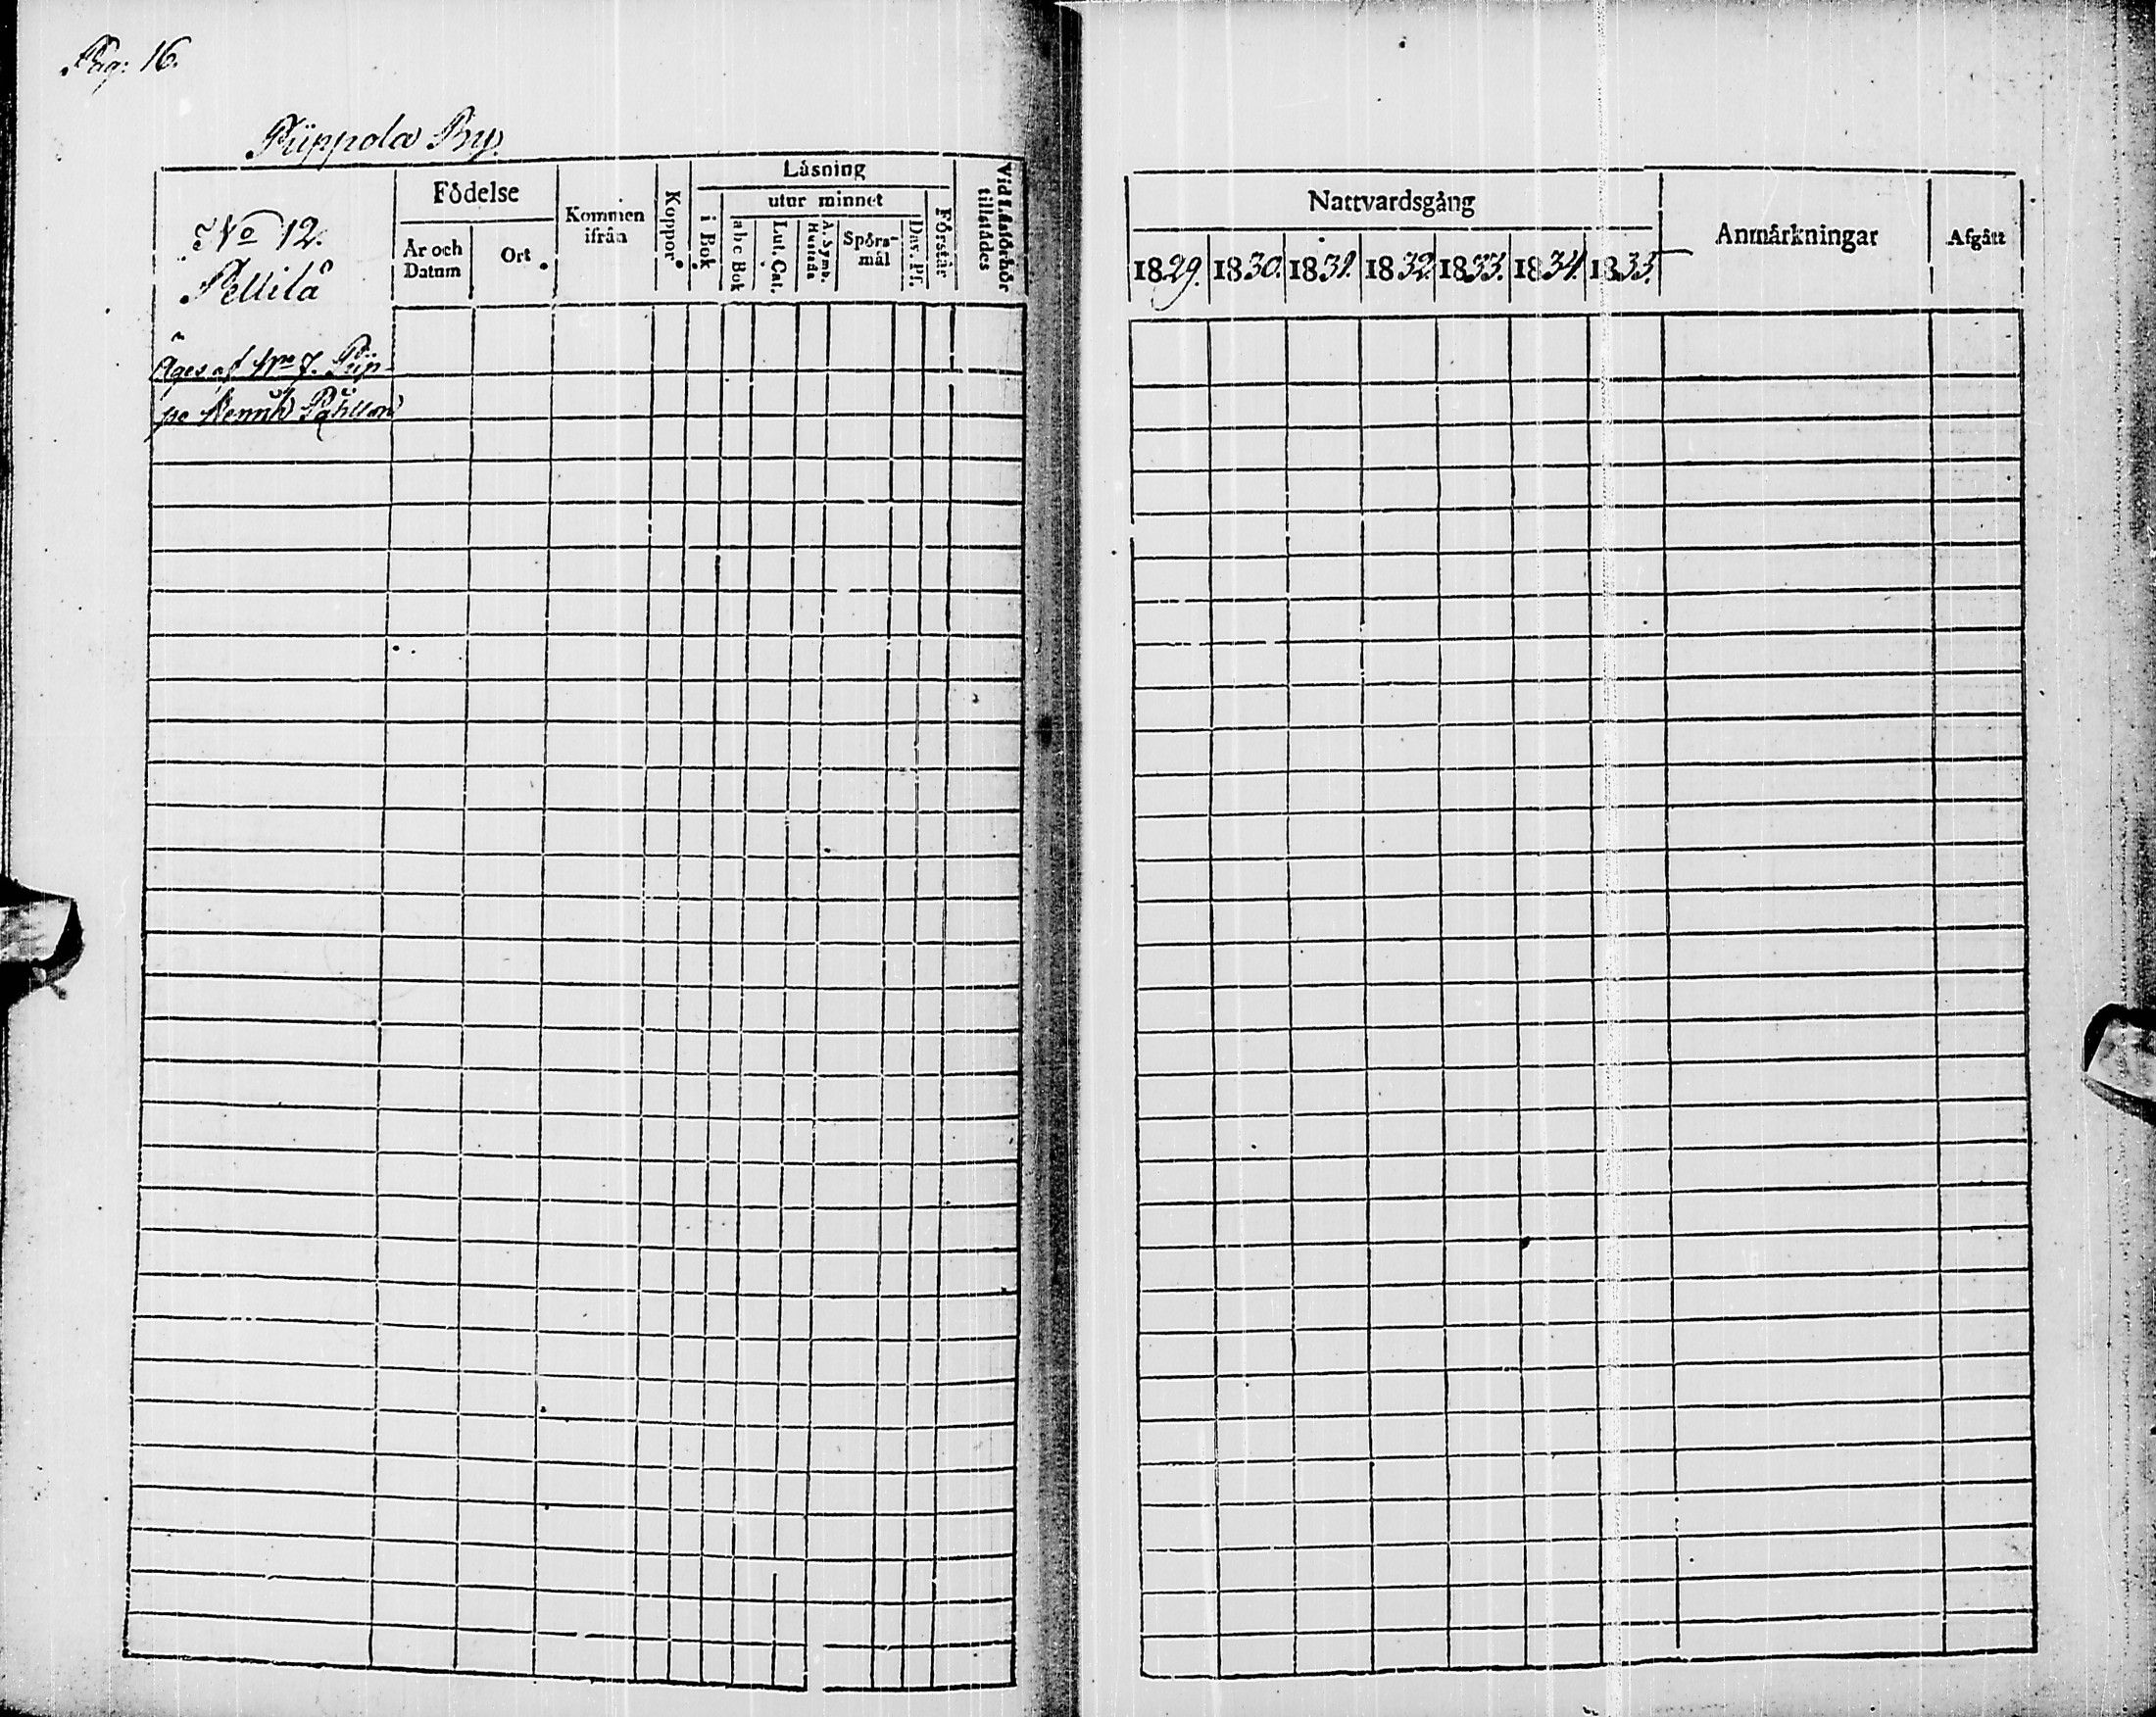 Pag: 16.
Piippola By.
No 12.
Pellilä
Födelse
År och Datum
Ort
Kommen ifrån
Koppor
Läsning
i Bok
utur minnet
abc Bok
Lut. Cat.
A. Symb. Hustafl.
Spörsmål
Dav. Ps.
Förstår
Vid Läsförhör tillstädes
Äges af No 7. Piip-
pe
Nattvardsgång
1829.
1830.
1831.
1832
1833.
1834.
1835.
Anmärkningar
Afgått